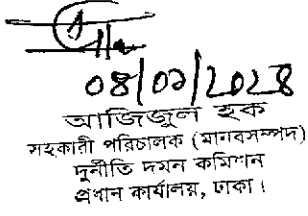 ০৪/০১/২০২৪
আজিজুল হক
সহকারী পরিচালক (মানবসম্পদ)
দুর্নীতি দমন কমিশন
প্রধান কার্যালয়, ঢাকা।